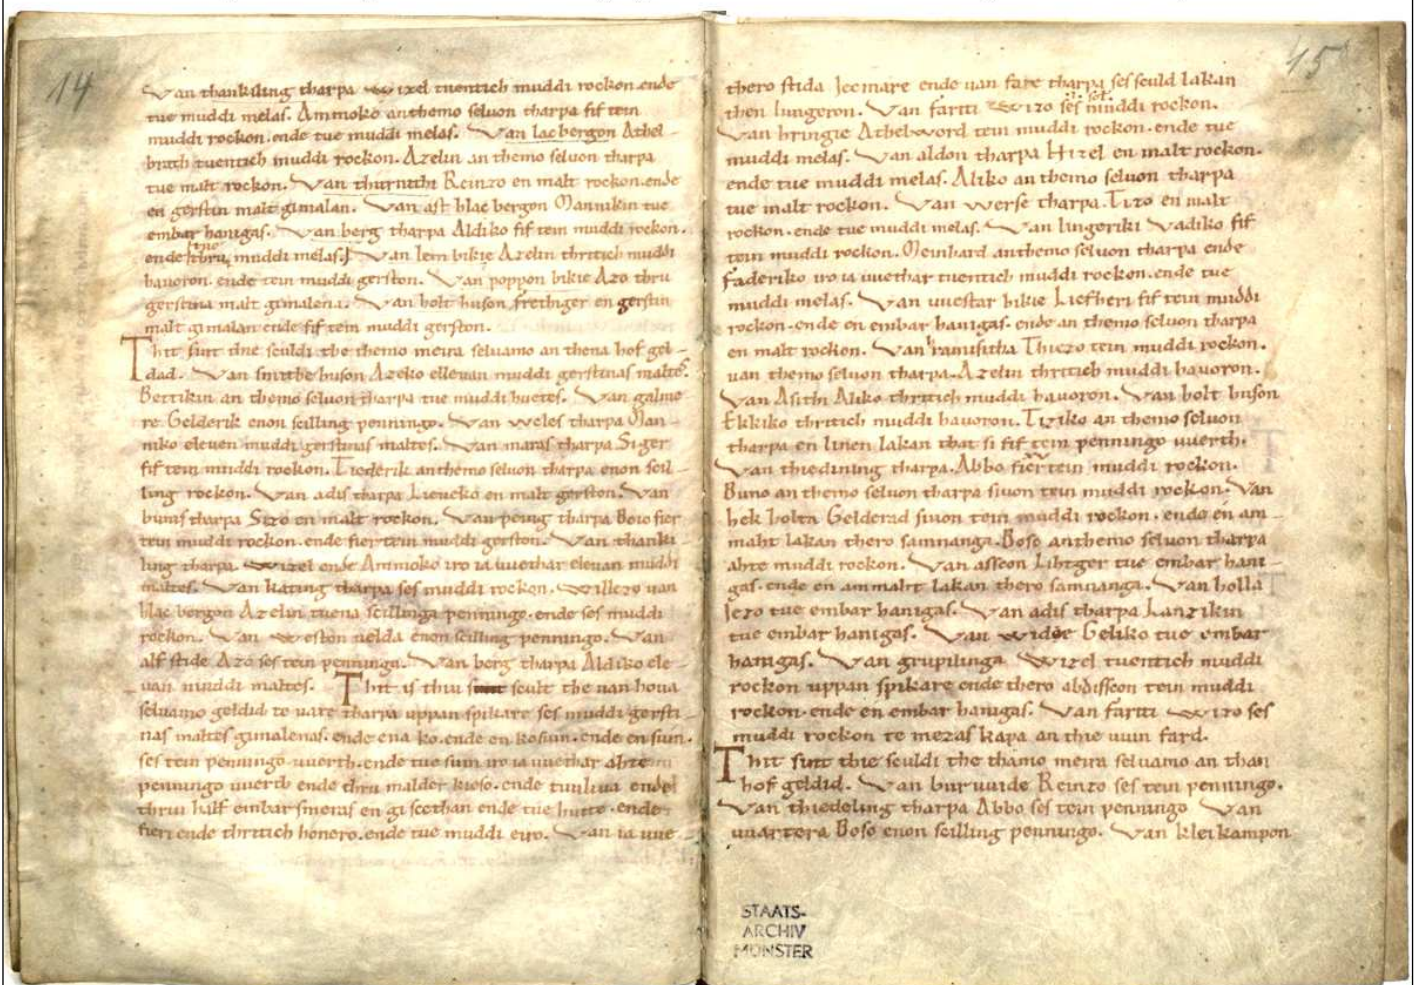 14
Van thankiling tharpa Wizel tuentich muddi rockon. ende
tue muddi melas. Ammoko an themo seluon tharpa fif tein
muddi rockon. ende tue muddi melas. Van lacbergon Athel-
brath tuentich muddi rockon. Azelin an themo seluon tharpa
tue malt rockon. Van thurnithi Reinzo en malt rockon. ende
en gerstin malt gimalan. Van ast blac bergon Mannikin tue
embar hanigas. Van berg tharpa Aldiko fif tein muddi rockon.
ende thru muddi melas. Van lem bikie Azelin thritich muddi
hauoron. ende tein muddi gerston. Van poppon bikie Azo thru
gerstina malt gimalena. Van holt huson frethiger en gerstin
malt gimalan ende fif tein muddi gerston.
Thit sint the sculdi the themo meira seluamo an thena hof gel-
dad. Van smithe huson Azeko elleuan muddi gerstinas maltes.
Bettikin an themo seluon tharpa tue muddi huetes. Van galme
re Gelderik enon scilling penningo. Van weles tharpa Man-
niko eleuen muddi gerstinas maltes. Van maras tharpa Siger
fif tein muddi rockon. Tiederik an themo seluon tharpa enon scil-
ling rockon. Van adis tharpa Lieueko en malt gerston. Van
bunis tharpa Sizo en malt rockon. Van peing tharpa Boio fier
tein muddi rockon. ende fiertein muddi gerston. Van thanki-
ling tharpa. Wizel ende Ammoko iro ia uuethar eleuan muddi
maltes. Van kating tharpa ses muddi rockon. Willezo van
blac bergon Azelin tuena scillinga penningo. ende ses muddi
rockon. Van Weston uelda enon scilling penningo. Van
alf stide Azo ses tein penninga. Van berg tharpa Aldiko ele-
uan muddi maltes. Thit is thiu scult the uan houa
seluamo geldid te uare tharpa uppan spikare ses muddi gersti-
nas maltes gimalenas. ende ena ko. ende en kosuin. ende en suin.
ses tein penningo uuerth. ende tue suin iro ia uuethar ahte
penningo uuerth ende thru malder kieso. ende tuuliua ende
thriu half embar smeras en gi scethan ende tue hutte. ende
fieri ende thritich honero. ende tue muddi eiro. Van ia uue
15
thero stida Iecmare ende uan fare tharpa ses sculd lakan
then lungeron. Van fariti Wizo ses muddi rockon.
Van hringie Athelword tein muddi rockon. ende tue
muddi melas. Van aldon tharpa Hizel en malt rockon.
ende tue muddi melas. Aliko an themo seluon tharpa
tue malt rockon. Van werse tharpa. Tizo en malt
rockon. ende tue muddi melas. Van lingeriki Vadiko fif
tein muddi rockon. Meinhard an themo seluon tharpa ende
faderiko iro ia uuethar tuentich muddi rockon. ende tue
muddi melas. Van uuestar bikie Liefheri fif tein muddi
rockon. ende en embar hanigas. ende an themo seluon tharpa
en malt rockon. Van hramisitha Thiezo tein muddi rockon.
uan themo seluon tharpa. Azelin thritich muddi hauoron.
Van Asithi Aliko thritich muddi hauoron. Van holt huson
Ekkiko thritich muddi hauoron. Tiziko an themo seluon
tharpa en linen lakan that si fif tein penningo uuerth.
Van thiedining tharpa. Abbo fiertein muddi rockon.
Buno an themo seluon tharpa siuon tein muddi rockon. Van
hek holta Gelderad siuon tein muddi rockon. ende en am-
maht lakan thero samnanga. Boso an themo seluon tharpa
ahte muddi rockon. Van asscon Lihtger tue embar hani-
gas. ende en ammaht lakan thero samnanga. Van holla
Iezo tue embar hanigas. Van adis tharpa Lanzikin
tue embar hanigas. Van widoe Geliko tue embar
hanigas. Van grupilinga Wizel tuentich muddi
rockon uppan spikare ende thero abdisscon tein muddi
rockon. ende en embar hanigas. Van fariti Wizo ses
muddi rockon te mezas kapa an thie uuin fard.
Thit sint thie sculdi the thamo meira seluamo an than
hof geldid. Van buruuide Reinzo ses tein penningo.
Van thiedeling tharpa Abbo ses tein penningo Van
uuartera Boso enon scilling penningo. Van kleikampon
STAATS-
ARCHIV
MÜNSTER